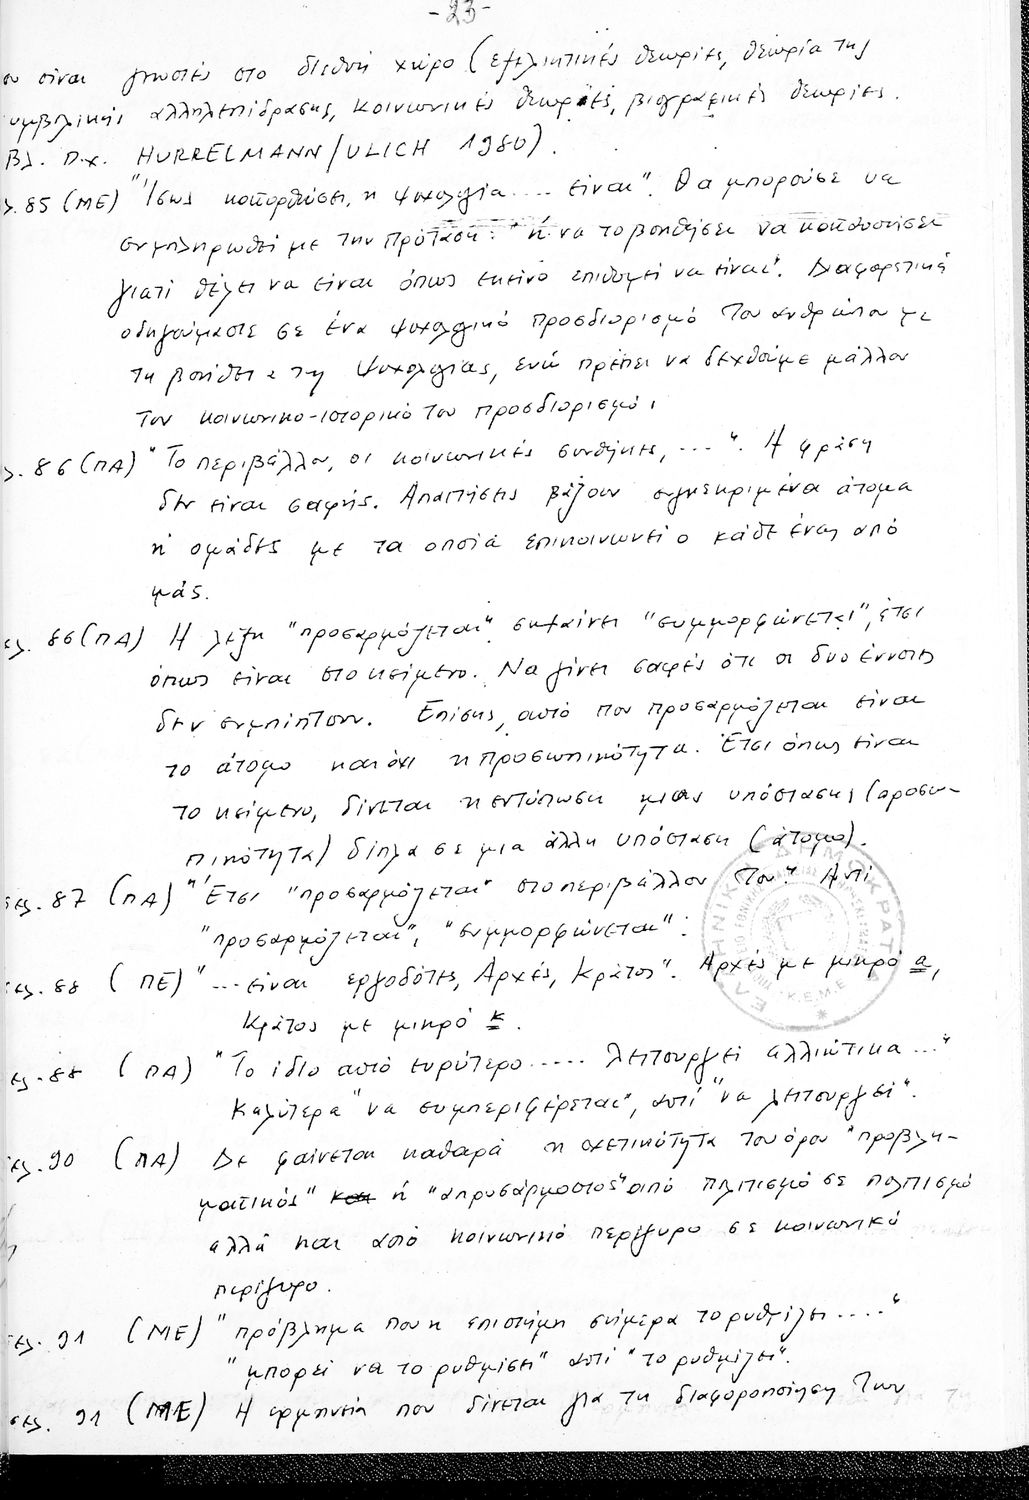 -23-
ου είναι γνωστές στο διεθνή χώρο (εξελικτικές θεωρίες, θεωρία της
υμβολικής αλληλεπίδρασης, κοινωνικές θεωρίες, βιογραφικές θεωρίες.
Βλ. π.χ. HURRELMANN/ULICH 1980).
λ. 85 (ΜΕ) "Ίσως κατορθώσει, η ψυχολογία .... είναι". Θα μπορούσε να
συμπληρωθεί με την πρόταση: "ή να το βοηθήσει να κατανοήσει
γιατί θέλει να είναι όπως εκείνο επιθυμεί να είναι". Διαφορετικά
οδηγούμαστε σε ένα ψυχολογικό προσδιορισμό του ανθρώπου με
τη βοήθεια της ψυχολογίας, ενώ πρέπει να δεχθούμε μάλλον
τον κοινωνικο-ιστορικό του προσδιορισμό.
λ. 86 (ΠΑ) "Το περιβάλλον, οι κοινωνικές συνθήκες, ...". Η φράση
δεν είναι σαφής. Απαιτήσεις βάζουν συγκεκριμένα άτομα
ή ομάδες με τα οποία επικοινωνεί ο κάθε ένας από
μάς.
ελ. 86 (ΠΑ) Η λέξη "προσαρμόζεται" σημαίνει "συμμορφώνεται", έτσι
όπως είναι στο κείμενο. Να γίνει σαφές ότι οι δυο έννοιες
δεν συμπίπτουν. Επίσης, αυτό που προσαρμόζεται είναι
το άτομο και όχι η προσωπικότητα. Έτσι όπως είναι
το κείμενο, δίνεται η εντύπωση μιας υπόστασης (προσω-
πικότητα) δίπλα σε μια άλλη υπόσταση (άτομο).
σελ. 87 (ΠΑ) "Έτσι "προσαρμόζεται" στο περιβάλλον του". Αντί
"προσαρμόζεται", "συμμορφώνεται".
σελ. 88 (ΠΕ) "... είναι εργοδότες, Αρχές, Κράτος". Αρχές με μικρό α,
Κράτος με μικρό κ.
ελ. 88 (ΠΑ) "Το ίδιο αυτό ευρύτερο ..... λειτουργεί αλλιώτικα ..."
Καλύτερα "να συμπεριφέρεται", αντί "να λειτουργεί".
σελ. 90 (ΠΑ) Δε φαίνεται καθαρά η σχετικότητα του όρου "προβλη-
ματικός" και ή "απροσάρμοστος" από πολιτισμό σε πολιτισμό
αλλά και από κοινωνικό περίγυρο σε κοινωνικό
περίγυρο.
σελ. 91 (ΜΕ) "πρόβλημα που η επιστήμη σήμερα το ρυθμίζει ...."
"μπορεί να το ρυθμίσει" αντί "το ρυθμίζει".
σελ. 91 (ΜΕ) Η ερμηνεία που δίνεται για τη διαφοροποίηση των
ΕΛΛΗΝΙΚΗ ΔΗΜΟΚΡΑΤΙΑ
Κ.Ε.Μ.Ε